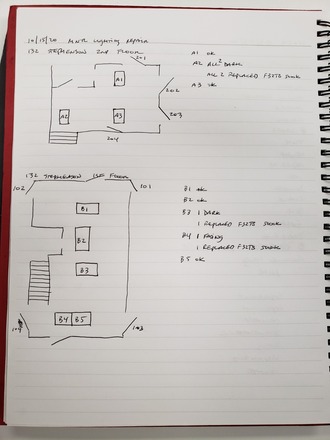 10/15/20 MNTL Lighting REPAIR
132 STEPHENSON 2ND FLOOR
201
A1 OK
A2 ALL 2 DARK
ALL 2 REPLACED F32T8 5000K
A3 OK
A1
202
A2
A3
203
204
132 STEPHENSON 1ST FLOOR
102
101
B1
B1 OK
B2 OK
B2
B3 1 DARK
1 REPLACED F32T8 5000K
B3
B4 1
1 REPLACED F32T8 5000K
B5 OK
B4 B5
104
103